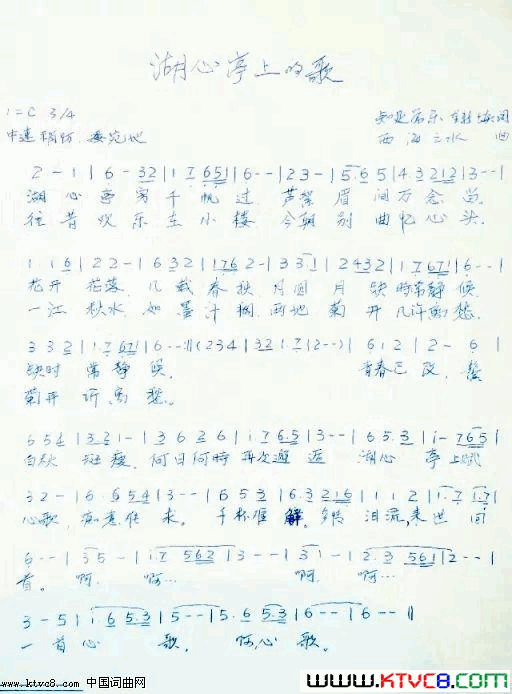 湖心亭上的歌
1=C 3/4
中速稍慢 委宛地 词
西海之水 曲
2 - 1 | 6 - 32 | 1 7 65 | 6 - - | 2 3 - | 5. 6 5 | 4. 3 212 | 3 - - |
湖心亭 千帆过 芦 眉间万念
往昔欢乐在小楼 今朝别曲忆心头
1 1 6 | 2 2 - | 6 3 2 | 1 76 2 - | 3 3 1 | 2 432 | 1 7 67 | 6 - - |
花开花落 几载春秋 月圆月缺时常静候
一江秋水 如墨汁稠 两地菊开几许离愁
3 3 2 | 1. 7 67 | 6 - - :|| (2 3 4 | 32 1. 7 (2 - -) | 6 1 2 | 2 - 6 |
缺时常静候 青春已 鬓
菊开 离愁。
6 5 4 | 3 2 1 - | 3 6 2 6 | i. 7 6.5 | 3 - - | 6 5.3 | i - 765 |
白 斑 何日何时再次邂逅 湖心亭上
32 - | 6. 6 54 | 3 - - | 6 5 3 | 6.3 216 | 1 1 2 | 1.7 1.7 |
心歌 千杯 解 泪流来世回
6 - - | 3 5 - | i. 7 562 | 3 - - | 3 1 - | 2. 3 561 | 2 - - |
首。啊 啊… 啊 啊…
3 - 5 | i. 6 5.3 | 5 - - | 5. 6 5.3 | 6 - - | 6 - - ||
一首心歌 心歌。
www.ktvc8.com 中国词曲网
WWW.KTVC8.COM